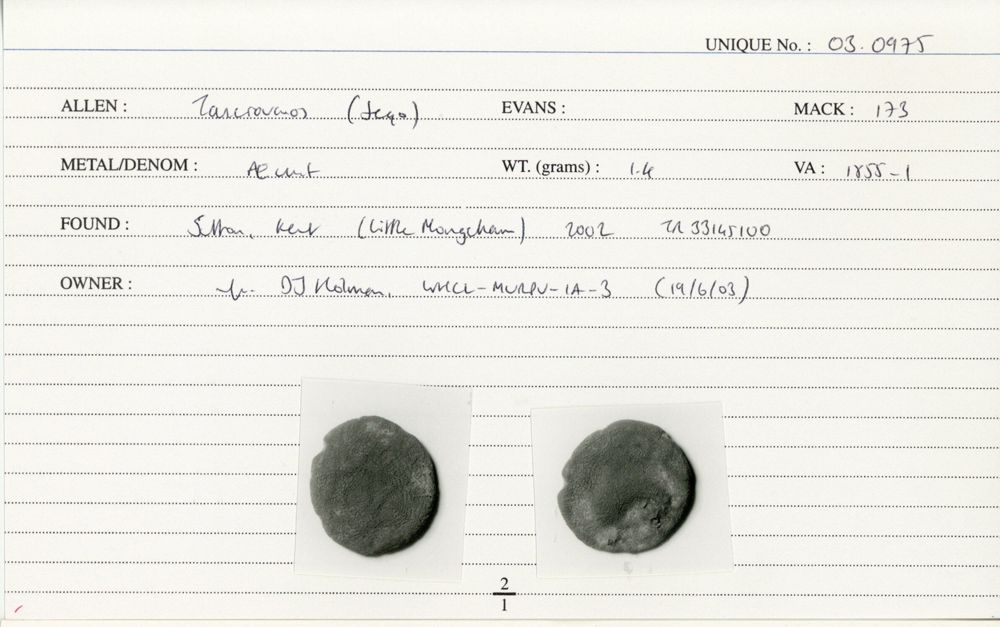 UNIQUE No. : 03.0975
ALLEN : Tasciovanos (Sego) EVANS : MACK : 173
METAL/DENOM : AE unit WT. (grams) : 1.4 VA : 1855-1
FOUND : Sutton, Kent (Little Mongeham) 2002 TR 33145100
OWNER : DJ Holman, WHCL-MURPV-IA-3 (19/6/03)
2
1